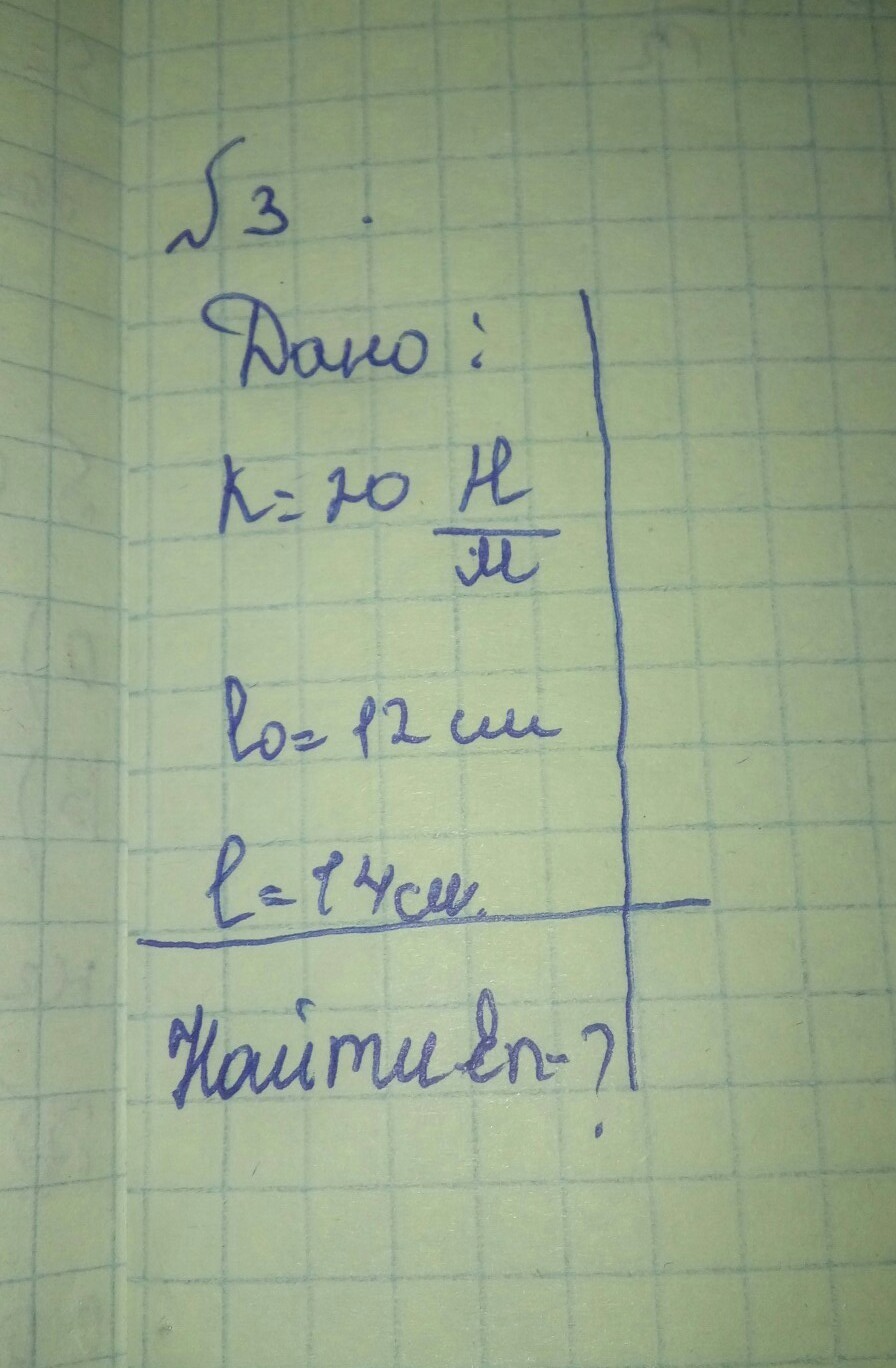 №3.
Дано:
k=20 Н/м
l₀=12 см
l=14 см.
Найти Eп-?